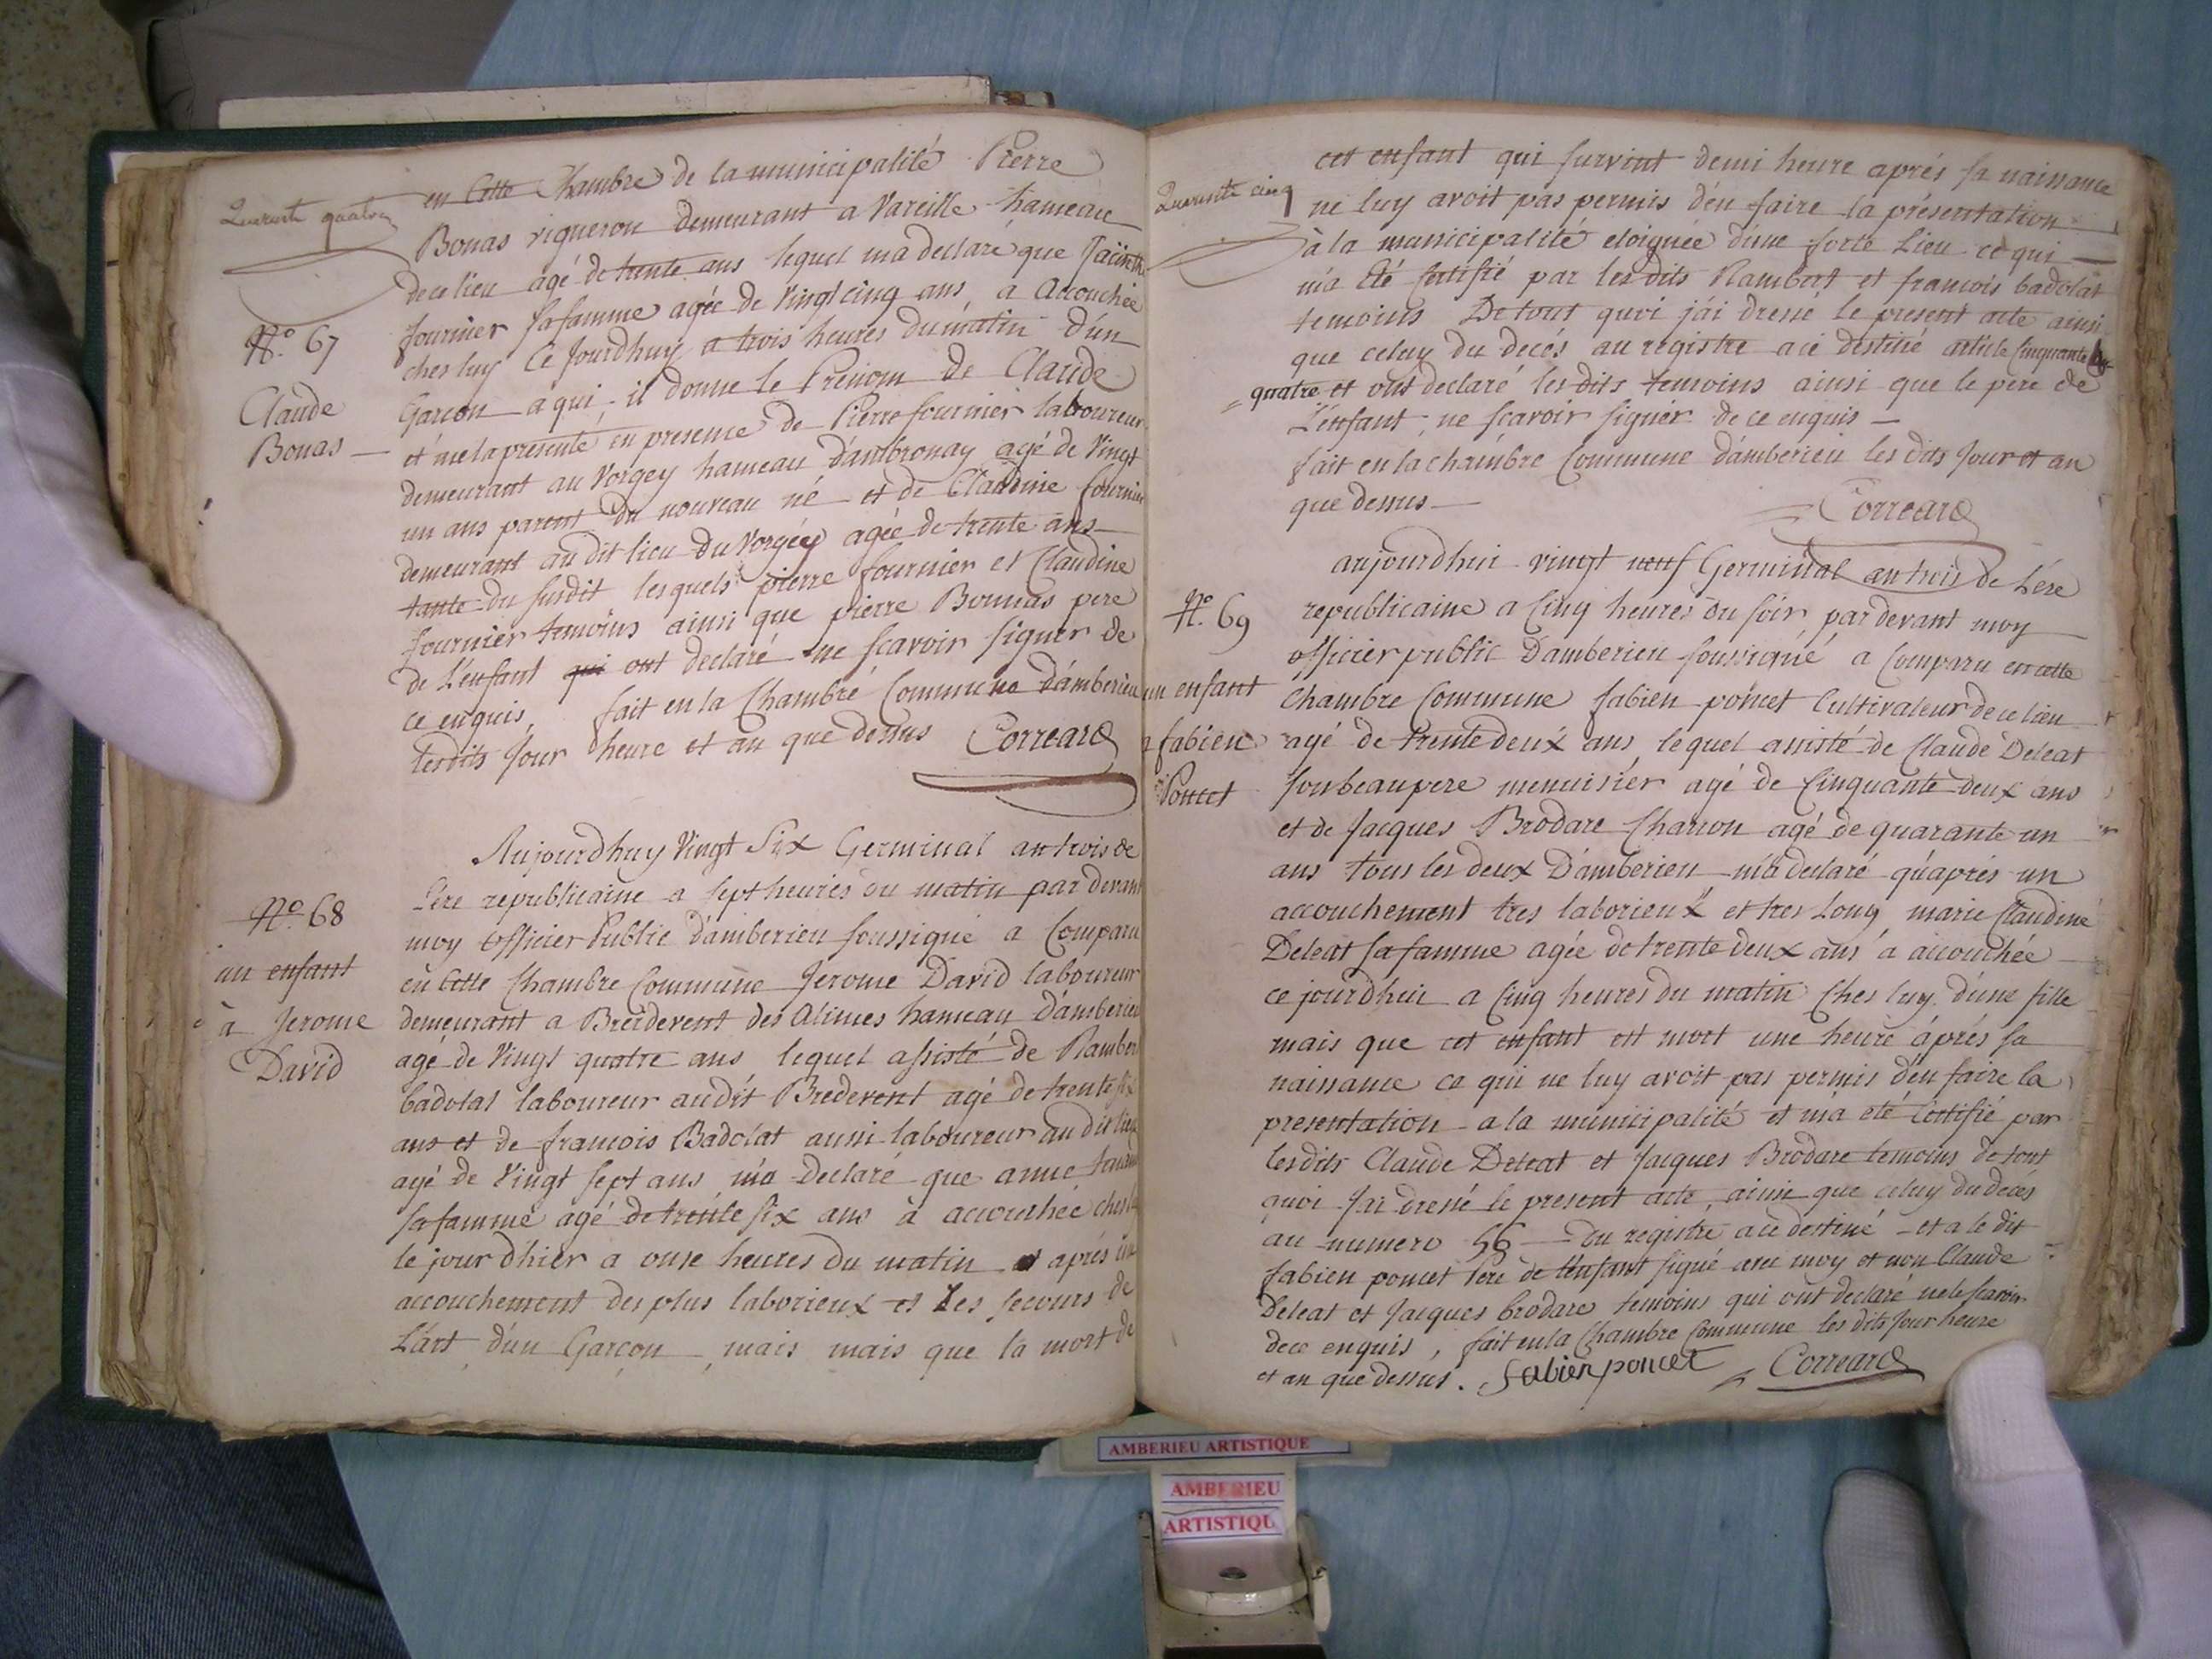 Quarante quatre
en Cette Chambre de la municipalité Pierre
Bonas vigneron demeurant a Vareille hameau
de ce lieu agé de trente ans lequel ma declaré que Jacinthe
fournier sa famme agée de Vingt cinq ans, a Accouchée
ches luy Ce Jourdhuy a trois heures du matin d'un
Garcon a qui il donne le Prenom de Claude
et me la presenté en presence de Pierre fournier laboureur
demeurant au Vorgey hameau d'ambronay agé de Vingt
un ans parent du nouveau né et de Claudine fournier
demeurant au dit lieu du Vorgey agée de trente ans
tante du susdit lesquels pierre fournier et Claudine
fournier temoins ainsi que pierre Bonnas pere
de L'enfant qui ont declaré ne scavoir signer de
ce enquis, fait en la Chambre Commune d'amberieu
lesdits Jour heure et an que dessus Correard
No. 67
Claude
Bonas
Aujourdhuy Vingt Six Germinal an trois de
L'ere republicaine a sept heures du matin par devant
moy Officier Public d'amberieu soussigné a Comparu
en Cette Chambre Commune Jerome David laboureur
demeurant a Breidevent des Alimes hameau D'amberieu
agé de Vingt quatre ans lequel assisté de Rambert
badolat laboureur audit Bredevent agé de trente six
ans et de francois Badolat aussi laboureur au dit lieu
agé de Vingt sept ans, m'a Declaré que anne
sa famme agé de trente six ans a accouchée ches luy
le jour d'hier a onse heures du matin et aprés un
accouchement des plus laborieux et Les secours de
L'art d'un Garcon, mais mais que la mort de
No. 68
un enfant
à Jerome
David
Quarante cinq
cet enfant qui survint demi heure aprés sa naissance
ne luy avoit pas permis d'en faire la présentation
à la municipalité eloignée d'une forte Lieu ce qui
m'a Eté certifié par les dits Rambert et francois badolat
temoins De tout quoi j'ai dressé le present acte ainsi
que celuy du decés au registre a ce destiné article Cinquante
quatre et ont declaré les dits temoins ainsi que le pere de
L'enfant, ne scavoir signer de ce enquis
fait en la chambre Commune d'amberieu les dits Jour et an
que dessus
Correard
aujourdhui vingt neuf Germinal an trois de L'ére
republicaine a Cinq heures du soir par devant moy
officier public D'amberieu soussigné a Comparu en cette
Chambre Commune fabien poncet Cultivateur de ce lieu
agé de trente deux ans, lequel assisté de Claude Deleat
son beaupere menuisier agé de Cinquante deux ans
et de Jacques Brodare Charron agé de quarante un
ans tous les deux D'amberieu m'a declaré qu'aprés un
accouchement tres laborieux et tres Long marie Claudine
Deleat sa famme agée de trente deux ans a accouchée
ce jourdhui a Cinq heures du matin Ches luy d'une fille
mais que cet enfant est mort une heure áprés sa
naissance ce qui ne luy avoit pas permis d'en faire la
presentation a la municipalité et m'a eté Certifié par
lesdits Claude Deleat et Jacques Brodare temoins de tout
quoi Jai dressé le present acte, ainsi que celuy du decés
au numero 56 du registre a ce destiné et a le dit
fabien poncet Pere de l'enfant signé avec moy et non Claude
Deleat et Jacques brodare temoins qui ont declaré ne le scavoir
de ce enquis, fait en la Chambre Commune les dits Jour heure
et an que dessus. fabien poncet Correard
No. 69
un enfant
a fabien
Poncet
AMBERIEU ARTISTIQUE
AMBERIEU
ARTISTIQU